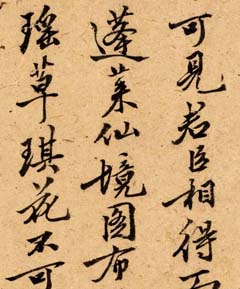 可見君臣相得而
蓬萊仙境圖布
瑶草琪花不可